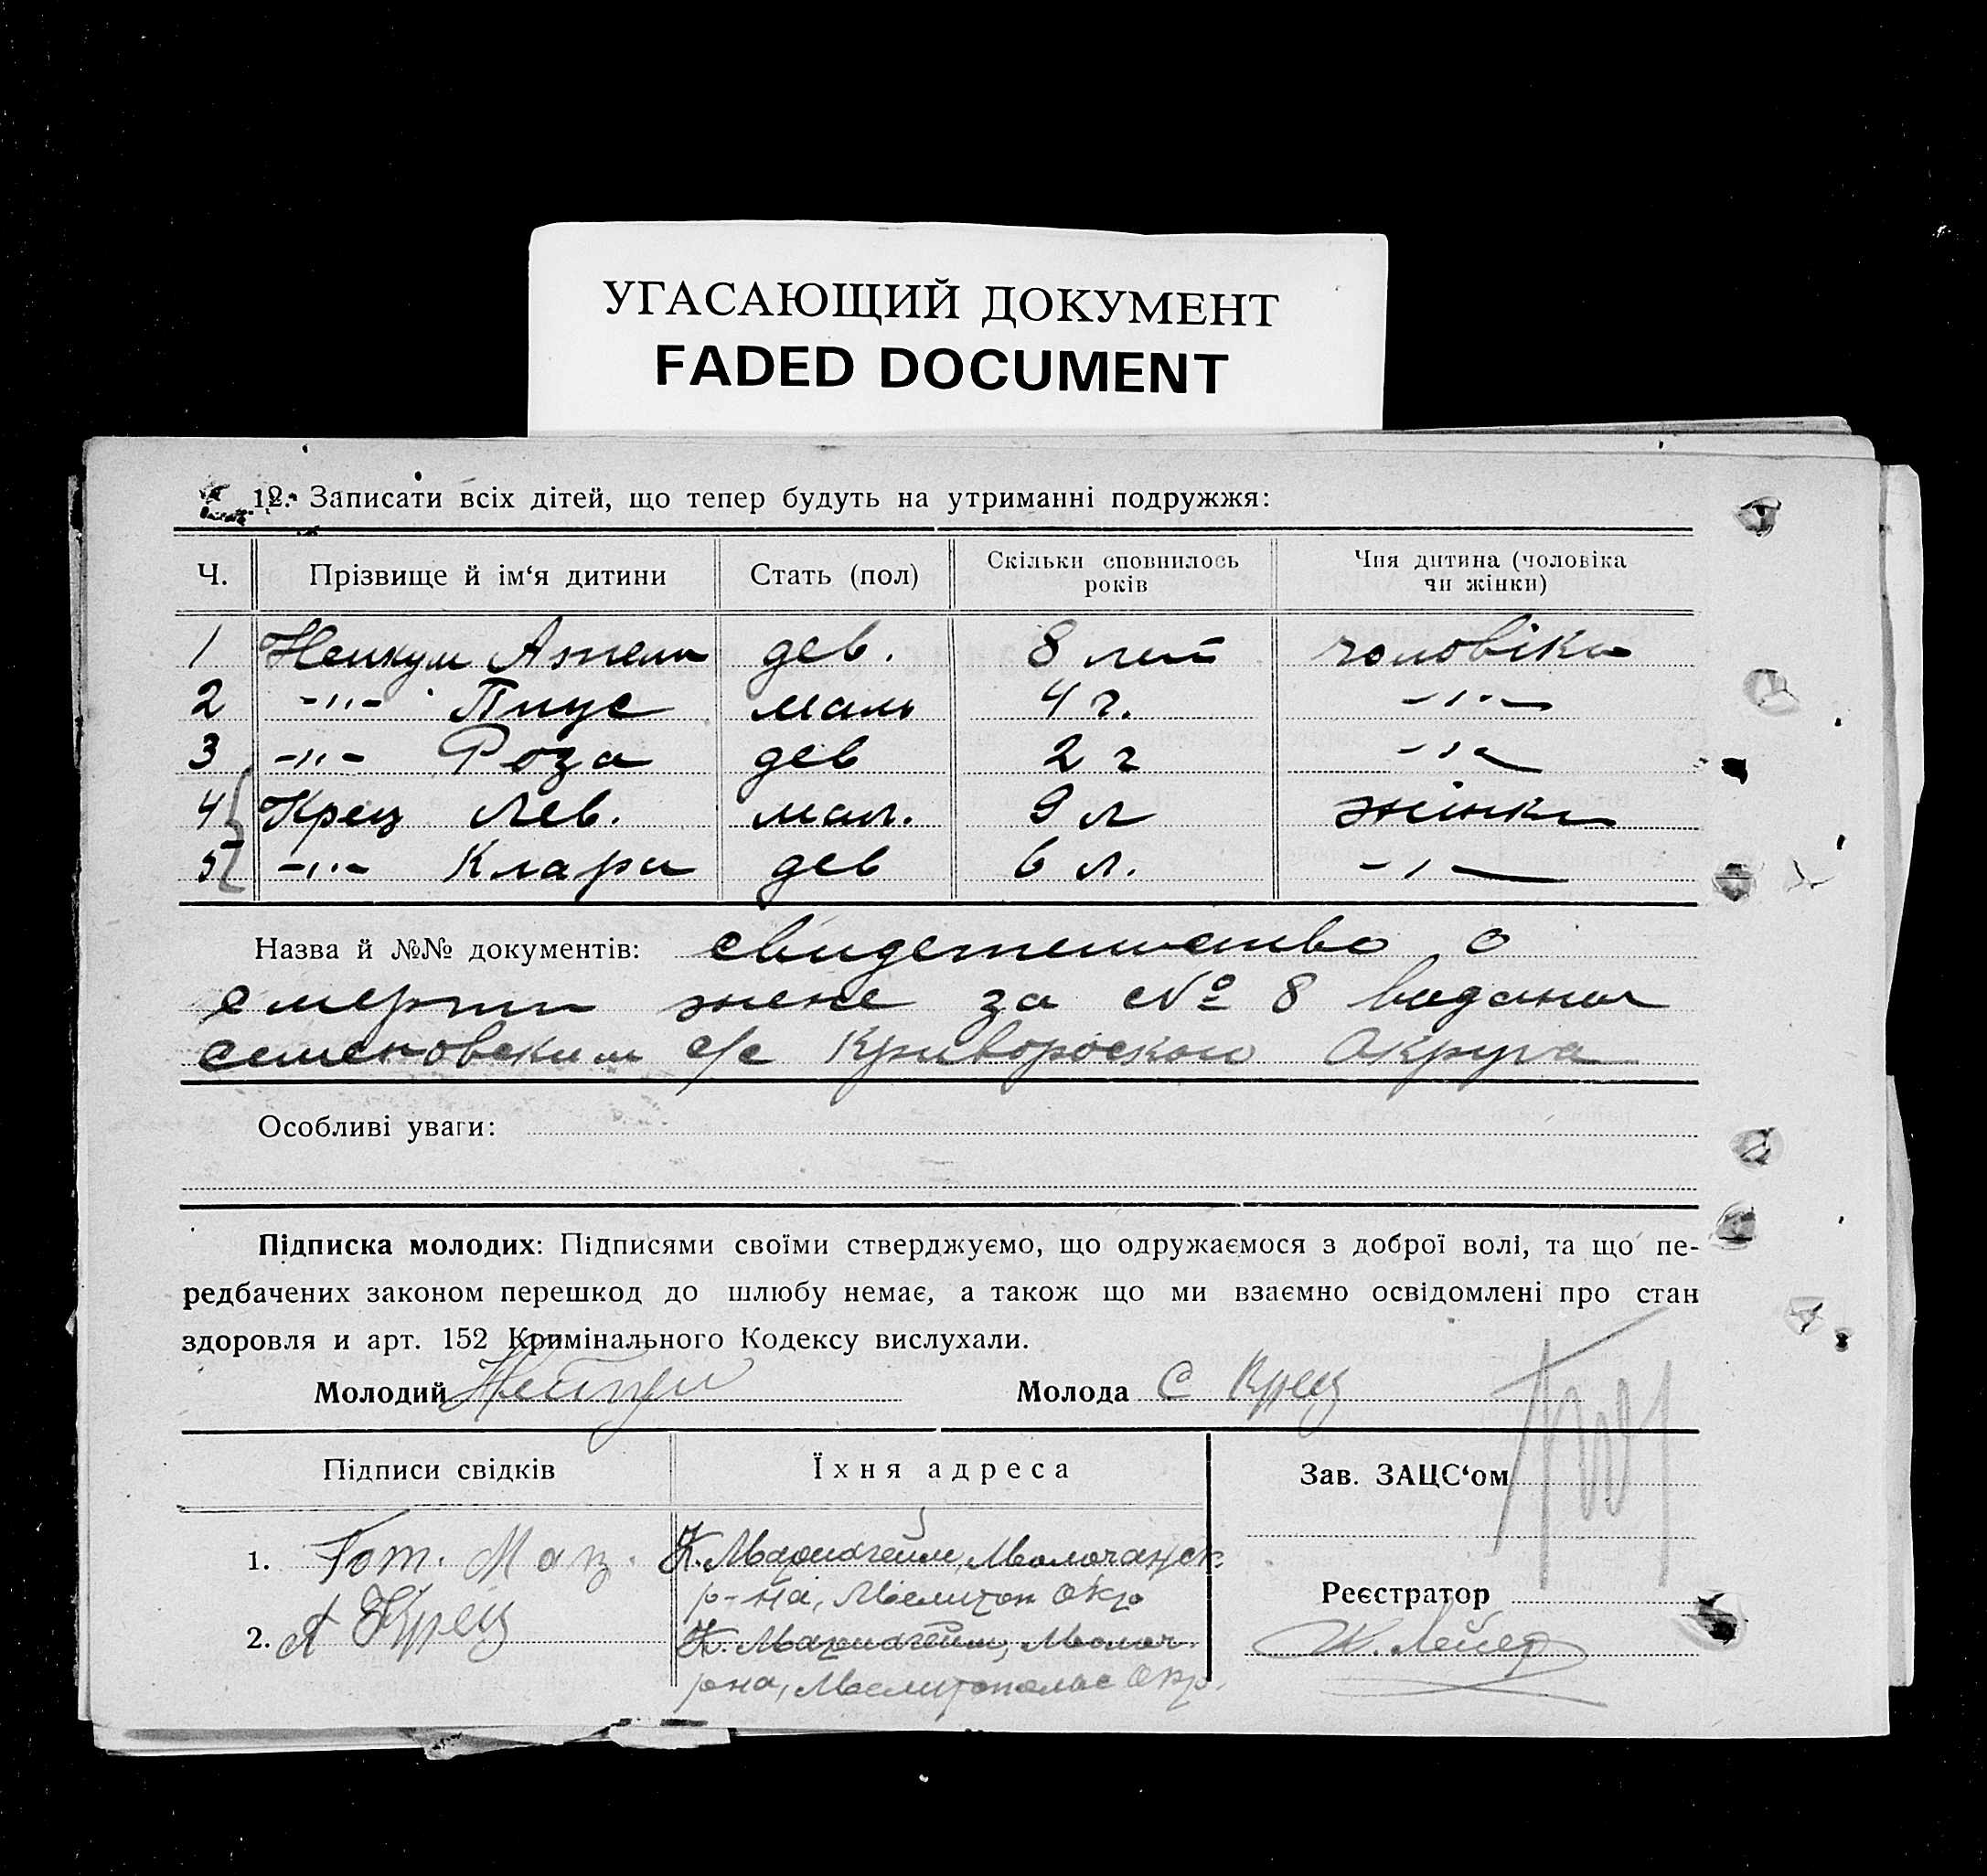 УГАСАЮЩИЙ ДОКУМЕНТ
FADED DOCUMENT
12. Записати всіх дітей, що тепер будуть на утриманні подружжя:
Ч. Прізвище й ім‘я дитини Стать (пол) Скільки сповнилось років Чия дитина (чоловіка чи жінки)
1 дев. 8 лет чоловіка
2 -"- Пиус маль 4 г. -"-
3 -"- Роза дев 2 г -"-
4 Крец Лев. мал. 9 л жінки
5 -"- Клара дев 6 л. -"-
Назва й №№ документів: свидетельство о
смерти жене за № 8 видания
семеновским с/с Криворожского Округа
Особливі уваги:
Підписка молодих: Підписями своїми стверджуємо, що одружаємося з доброї волі, та що пе-
редбачених законом перешкод до шлюбу немає, а також що ми взаємно освідомлені про стан
здоровля и арт. 152 Кримінального Кодексу вислухали.
Молодий Молода С Крец
Підписи свідків Їхня адреса Зав. ЗАЦС‘ом
1. Гот. Мац. К. Мариагейм, Молочанск.
р-на, Мелитоп Окр
Реєстратор
2. А Крец К. Мариагейм, Молоч.
рна, Мелитопольс Окр.
К. Лейер